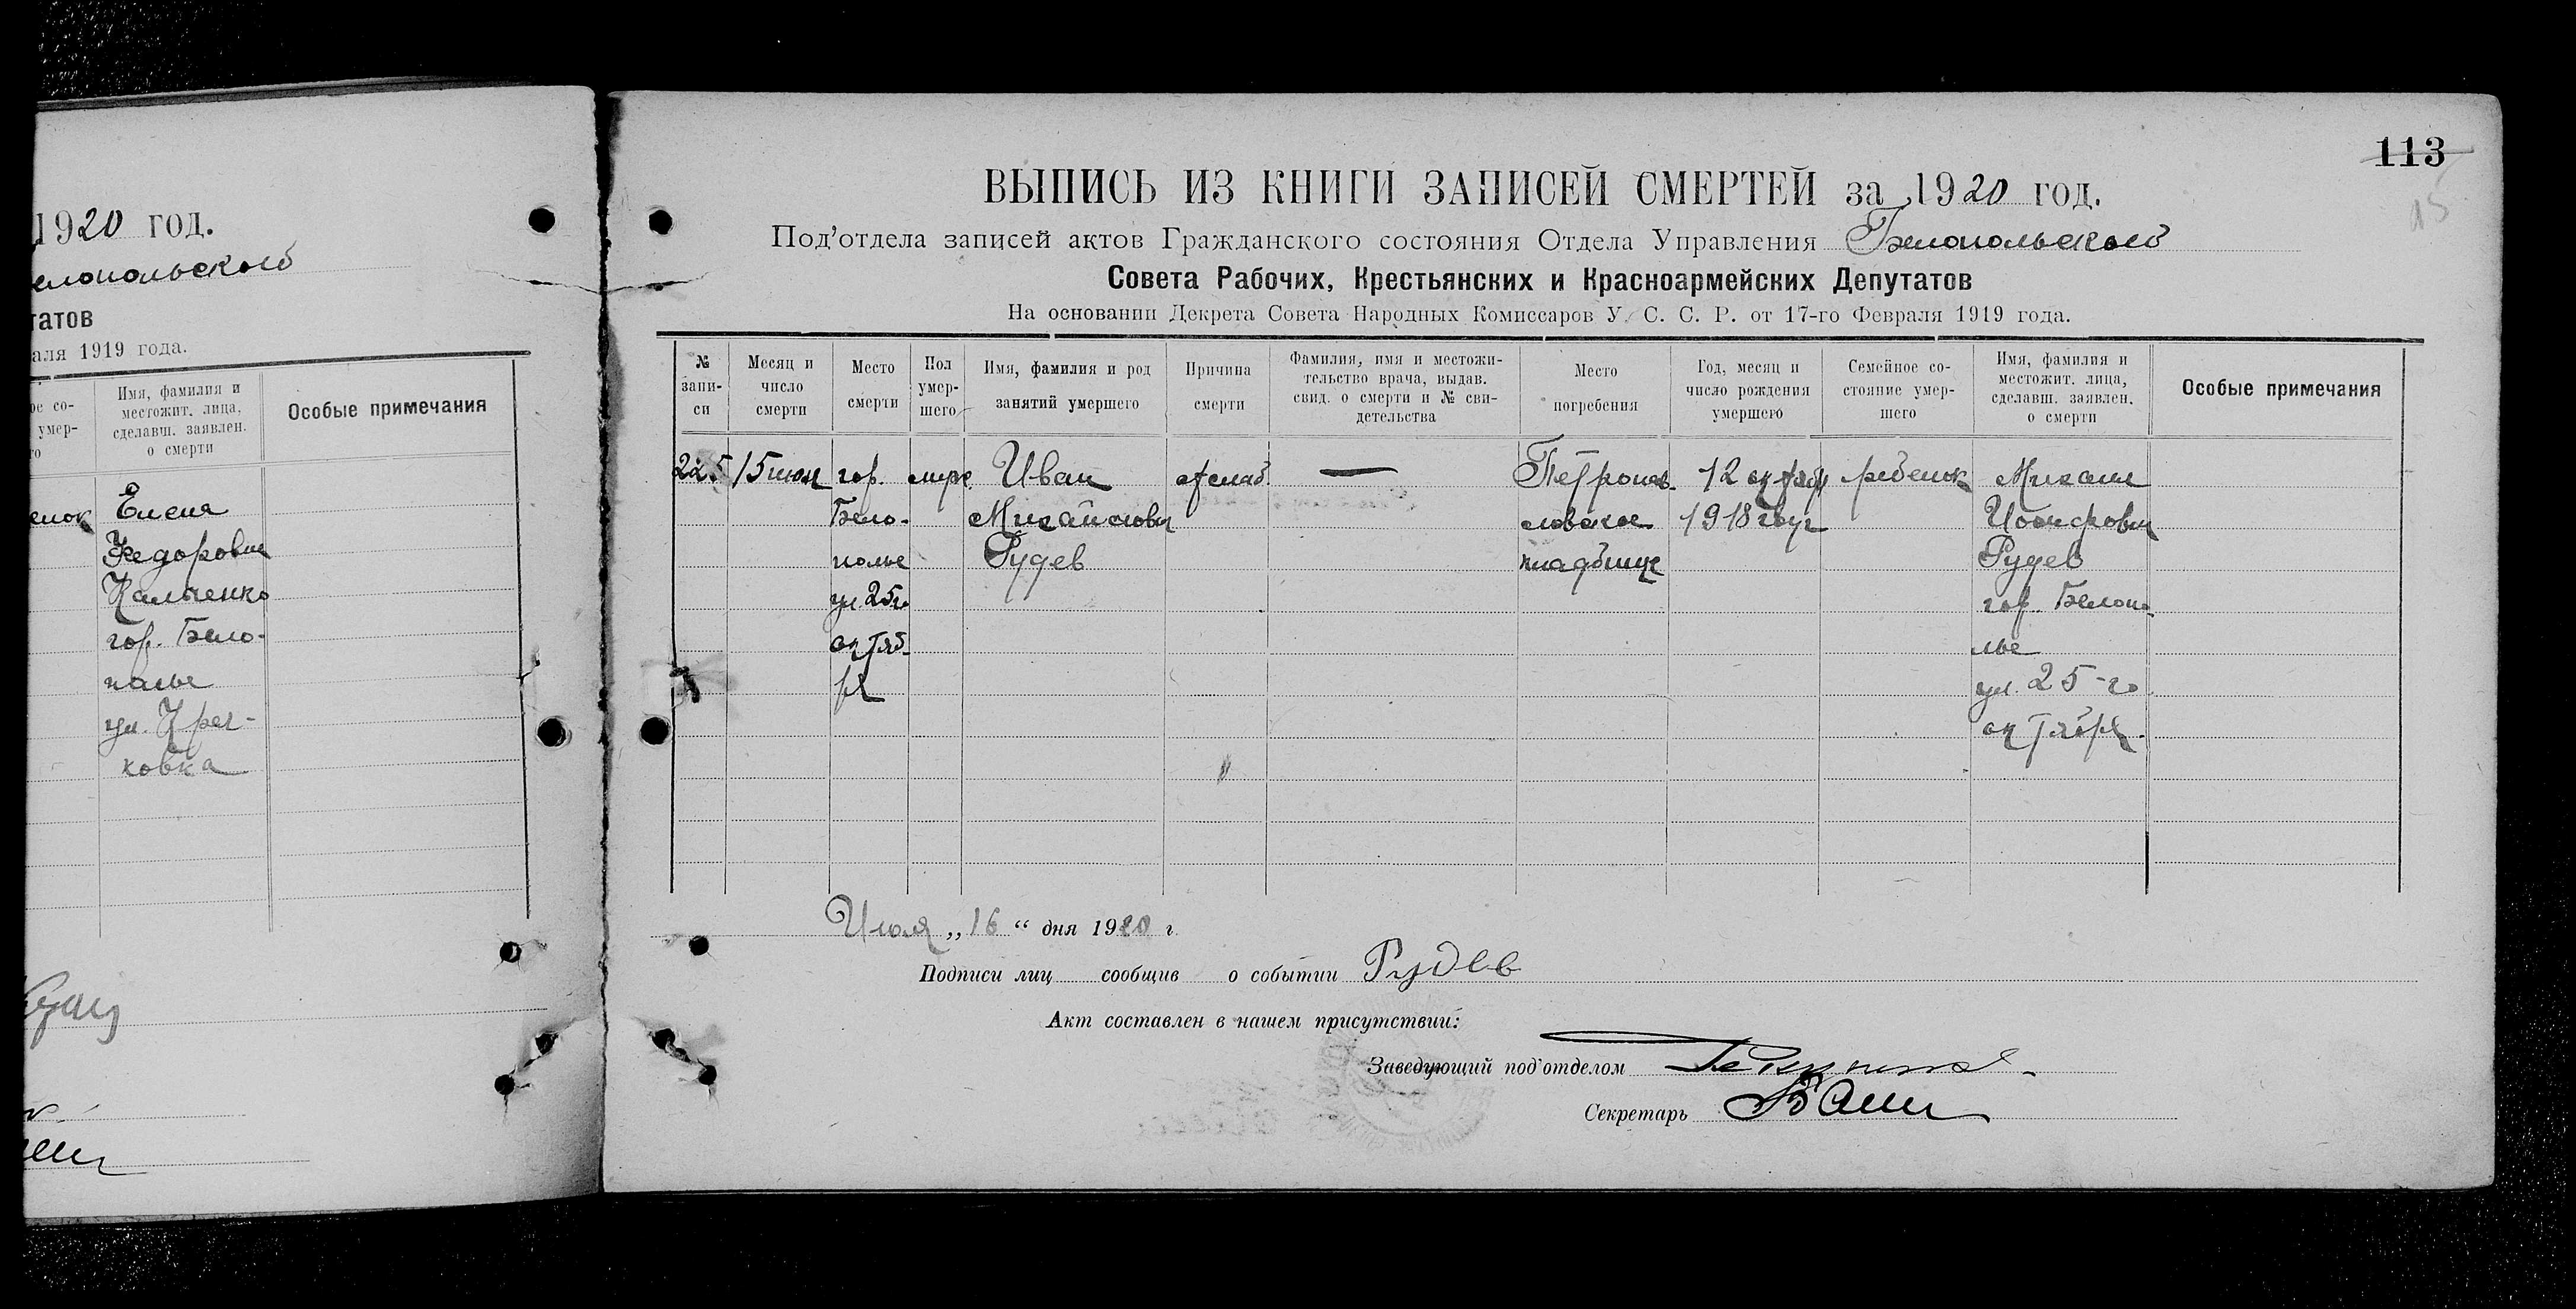 1920 год.
елопольской
татов
аля 1919 года.
ое со-
умер-
го
Имя, фамилия и
местожит. лица,
сделавш. заявлен.
о смерти
Особые примечания
енок Елена
Федоровна
Кальченко
гор. Бело-
полье
ул. Креч-
ковка
113
15
ВЫПИСЬ ИЗ КНИГИ ЗАПИСЕЙ СМЕРТЕЙ за 1920 год.
Под'отдела записей актов Гражданского состояния Отдела Управления Белопольской
Совета Рабочих, Крестьянских и Красноармейских Депутатов
На основании Декрета Совета Народных Комиссаров У. С. С. Р. от 17-го Февраля 1919 года.
№
запи-
си
Месяц и
число
смерти
Место
смерти
Пол
умер-
шего
Имя, фамилия и род
занятий умершего
Причина
смерти
Фамилия, имя и местожи-
тельство врача, выдав.
свид. о смерти и № сви-
детельства
Место
погребения
Год, месяц и
число рождения
умершего
Семейное со-
стояние умер-
шего
Имя, фамилия и
местожит. лица,
сделавш. заявлен.
о смерти
Особые примечания
225 15 июля гор. муж. Иван ослаб. — Петропав- 12 октября ребенок Михаил
Бело- Михайлович ловское 1918 году Иосифович
полье Рудев кладбище Рудев
ул. 25го гор. Белопо-
октяб- лье
ря ул. 25-го
октября.
Июля „16“ дня 1920 г.
Подписи лиц сообщив о событии Рудев
Акт составлен в нашем присутствии:
Заведующий под'отделом
Секретарь